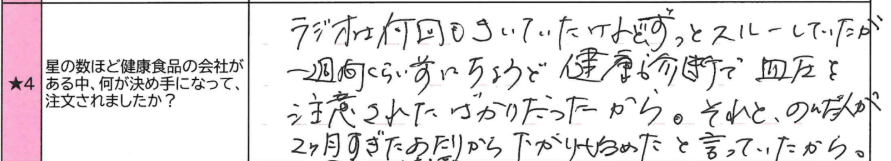 ★4
星の数ほど健康食品の会社が
ある中、何が決め手になって、
注文されましたか？
ラジオは何回もきいていたけれどずっとスルーしていたが
一週間くらい前にちょうど健康診断で血圧を
注意されたばかりだったから。それと、のんだ人が
2ヶ月すぎたあたりから下がり始めたと言っていたから。